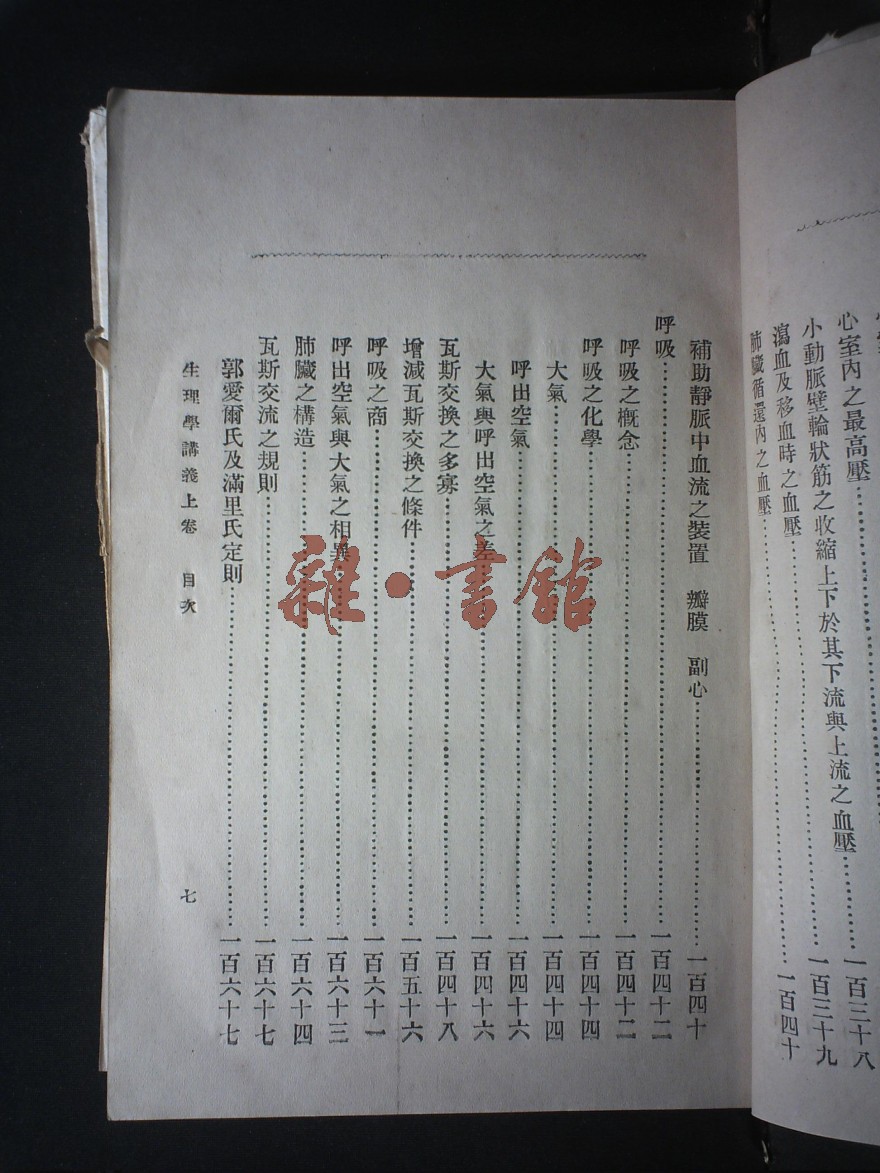 心室內之最高壓……一百三十八
小動脈壁輪狀筋之收縮上下於其下流與上流之血壓……
瀉血及移血時之血壓……一百三十九
肺臟循還內之血壓……一百四十
補助靜脈中血流之裝置 瓣膜 副心……一百四十
呼吸……一百四十二
呼吸之概念……一百四十二
呼吸之化學……一百四十四
大氣……一百四十四
呼出空氣……一百四十六
大氣與呼出空氣之差……一百四十六
瓦斯交換之多寡……一百四十八
增減瓦斯交換之條件……一百五十六
呼吸之商……一百六十一
呼出空氣與大氣之相異……一百六十三
肺臟之構造……一百六十四
瓦斯交流之規則……一百六十七
郭愛爾氏及滿里氏定則……一百六十七
生理學講義上卷 目次 七
雜·書館